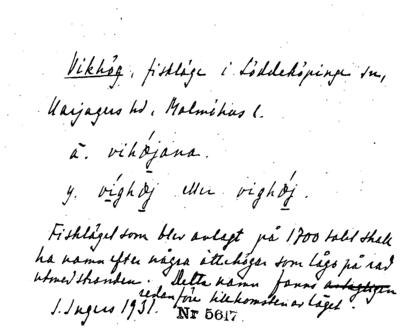 Vikhög, fiskläge i Löddeköpinge sn,
Harjagers hd, Malmöhus l.
ä. vihǿjana.
y. víghøj eller vighǿj.
Fiskläget som blev anlagt på 1700 talet skall
ha namn efter några ättehögar som lågo på rad
utmed stranden. Detta namn fanns antagligen
redan före tillkomsten av läget.
S. Ingers 1931. Nr 5617